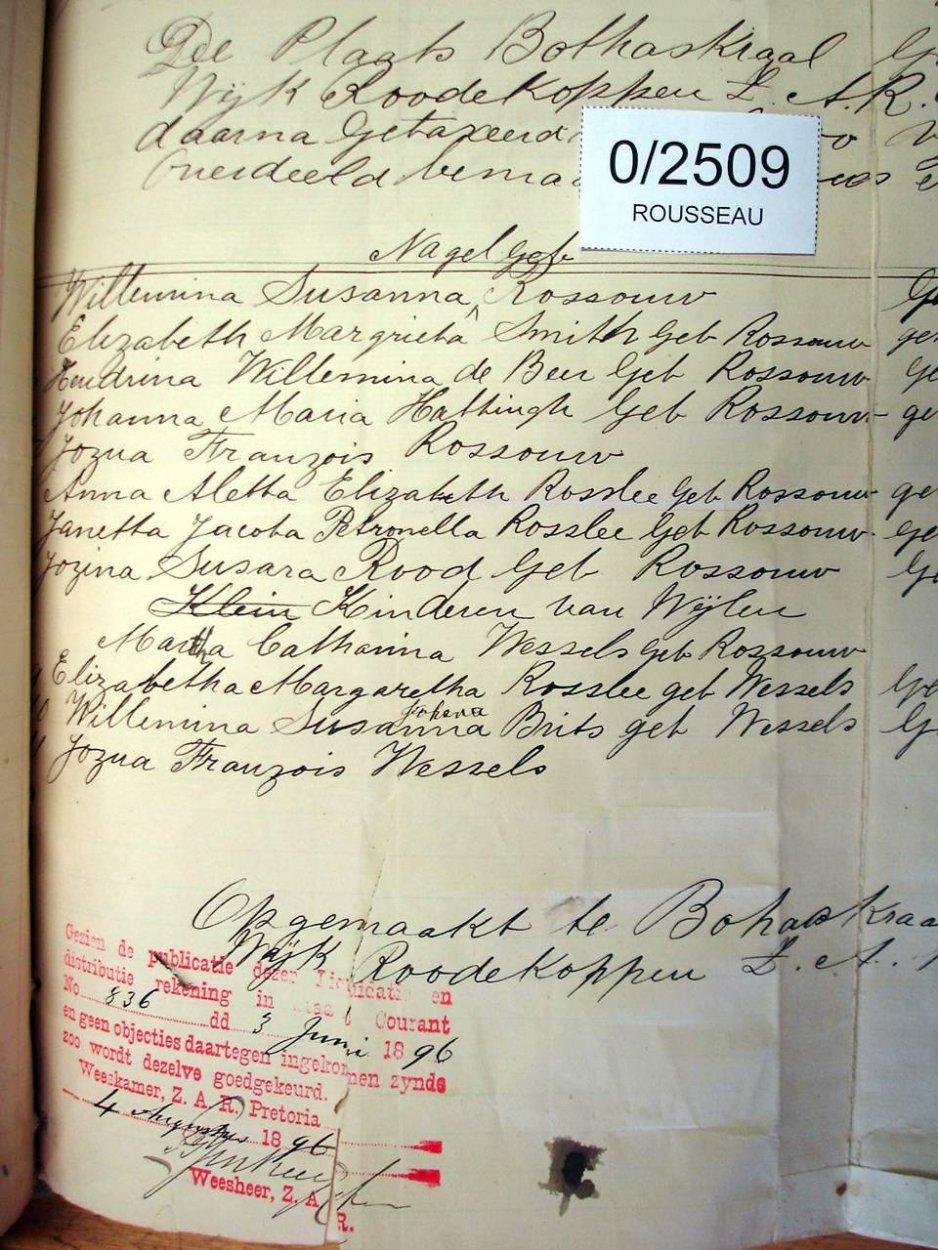 De Plaats Bothaskraal
Wijk Roodekoppen Z. A. R.
daarna Getaxeerd
Onverdeeld
0/2509
ROUSSEAU
Nagel Geb
Willemina Susanna Rossouw
Elizabeth Margrieta Smith Geb Rossouw
Hendrina Willemina de Beer Geb Rossouw
Johanna Maria Hattingh Geb Rossouw
Jozua Franzois Rossouw
Anna Aletta Elizabeth Rosslee Geb Rossouw
Janetta Jacoba Petronella Rosslee Geb Rossouw
Jozina Susara Rood Geb Rossouw
Klein Kinderen van Wijlen
Martha Catharina Wessels Geb Rossouw
Elizabetha Margaretha Rosslee geb Wessels
Johana
Willemina Susanna Brits geb Wessels
Jozua Franzois Wessels
Opgemaakt te
Wijk Roodekoppen Z. A.
Gezien de publicatie dezer Liquidatie en
distributie rekening in Staats Courant
No 836 dd 3 Juni 1896
en geen objecties daartegen ingekomen zynde
zoo wordt dezelve goedgekeurd.
Weeskamer, Z. A. R. Pretoria
4 Augustus 1896
Weesheer, Z. A. R.